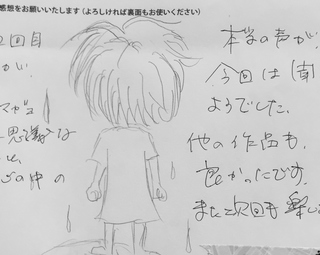 感想をお願いいたします(よろしければ裏面もお使いください)
2回目
かい
思議な
の中の
本当の声が
今回は
ようでした。
他の作品も、
良かったです。
また次回も楽し